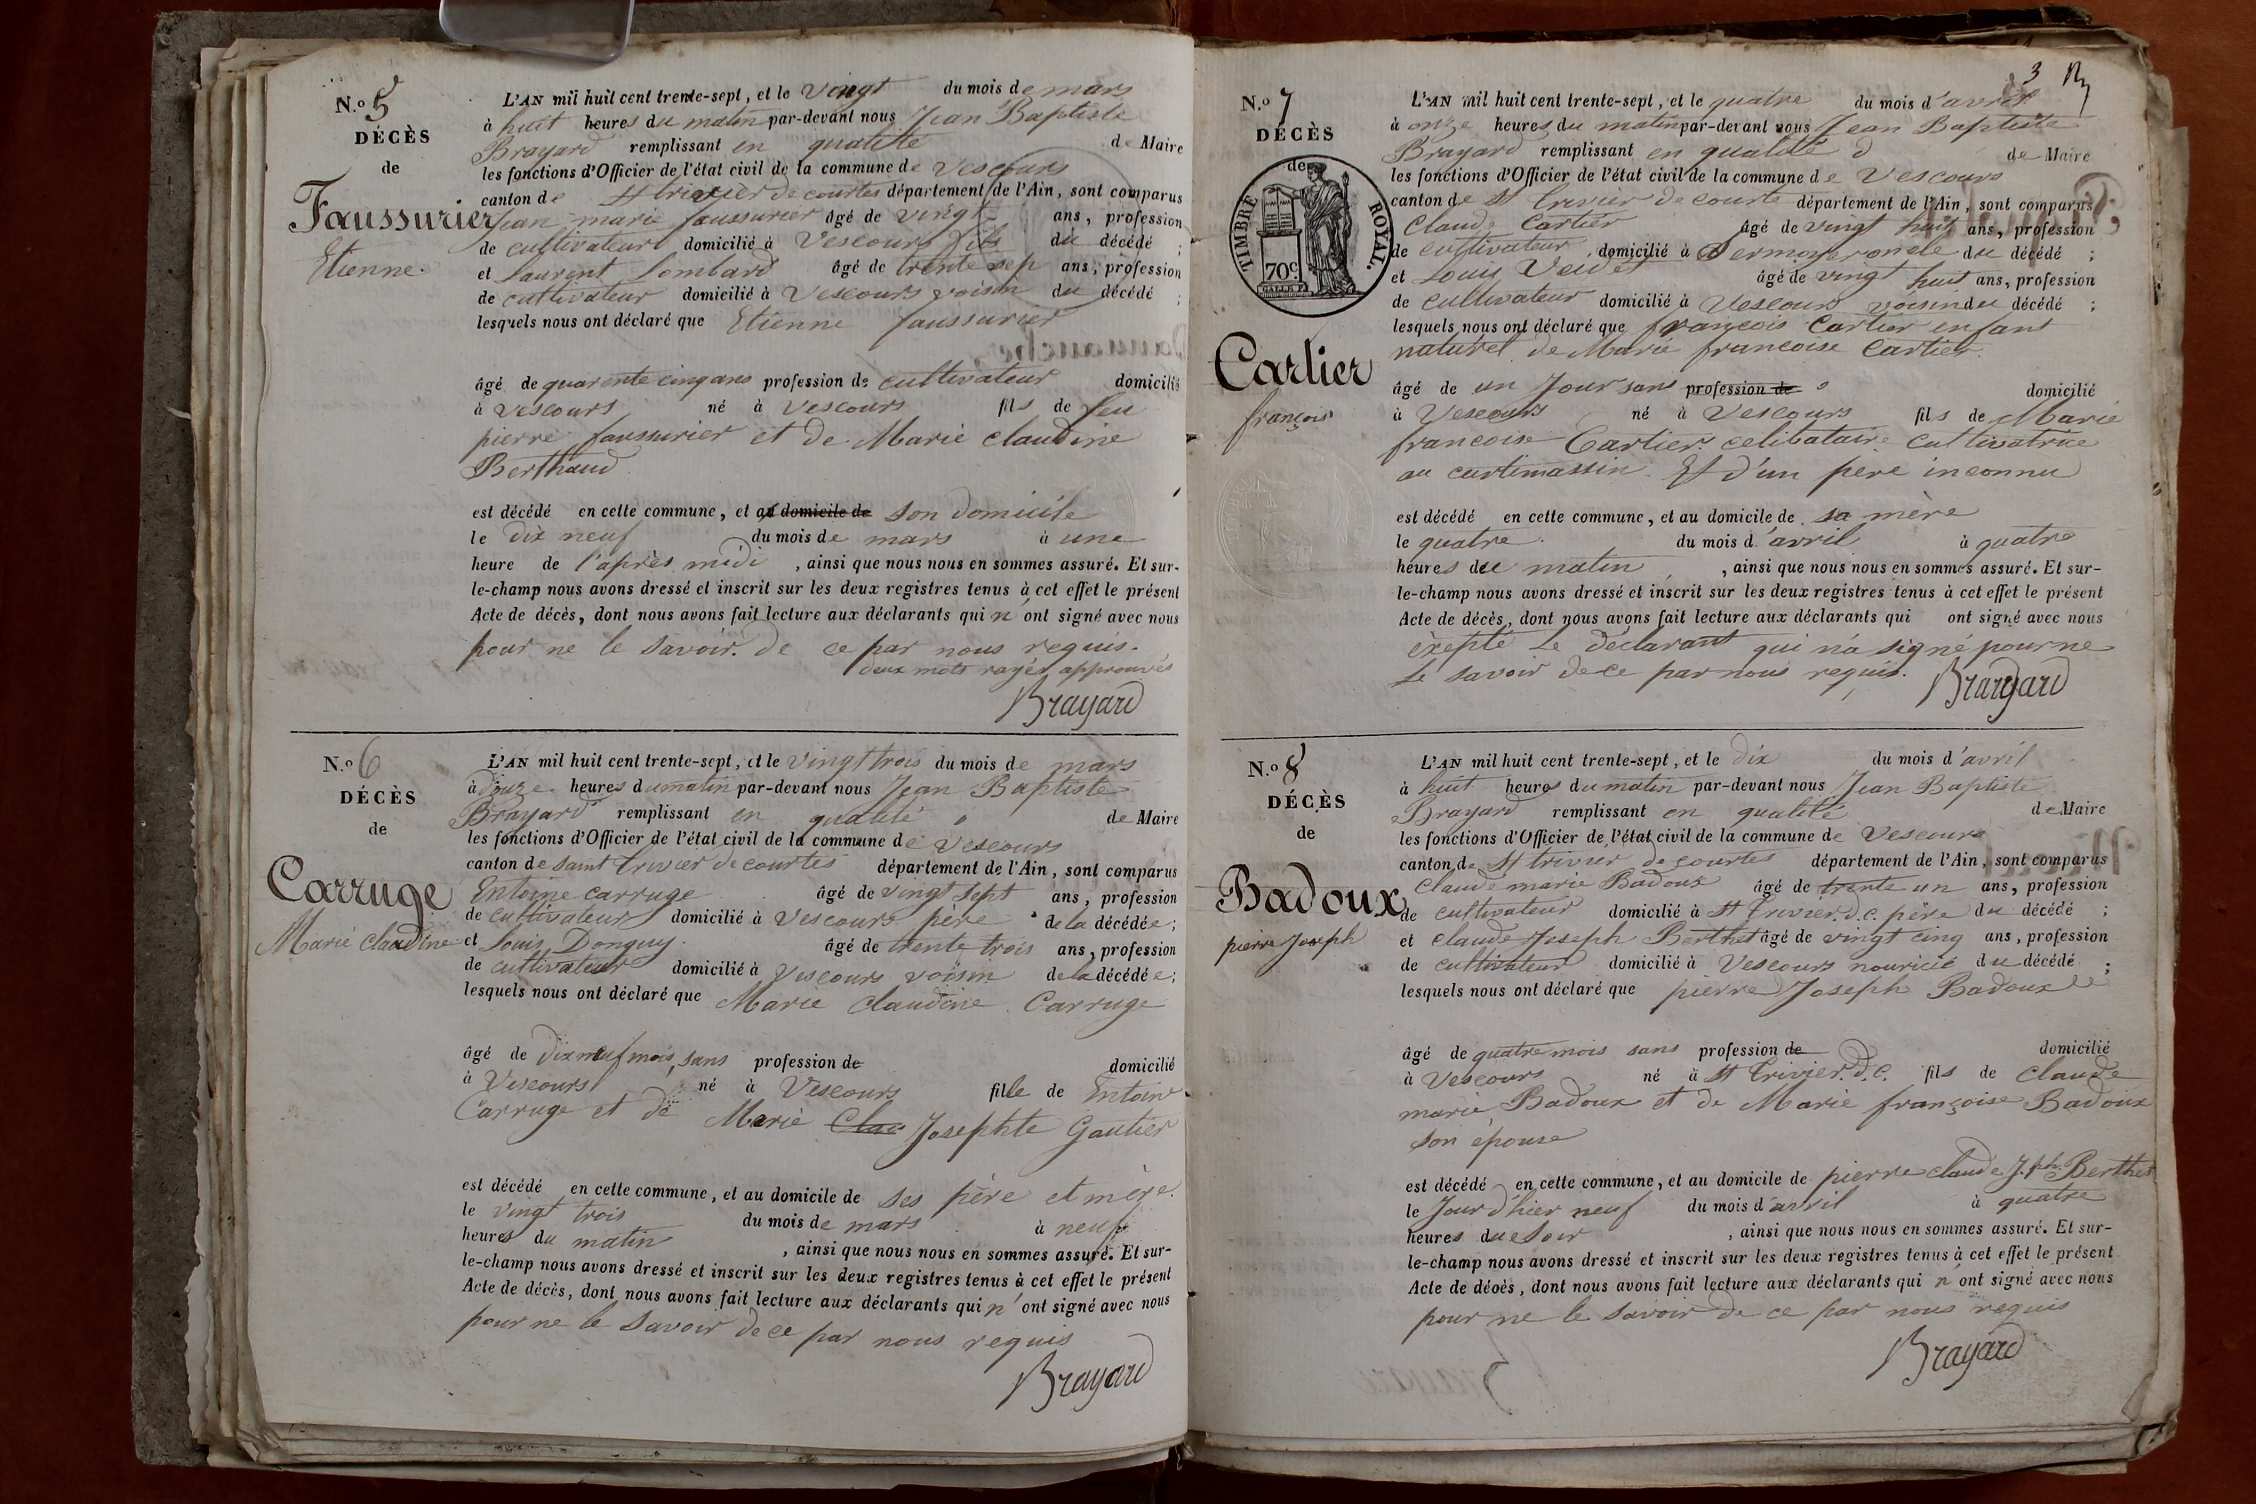 N.o 5
DÉCÈS
de
Faussurier
Etienne.
L'AN mil huit cent trente-sept, et le vingt du mois de mars
à huit heures du matin par-devant nous Jean Baptiste
Brayard remplissant en qualité de Maire
les fonctions d'Officier de l'état civil de la commune de Vescours
canton de St trivier de courtes département de l'Ain, sont comparus
jean marie faussurier âgé de vingt ans, profession
de cultivateur domicilié à Vescours fils du décédé ;
et Laurent Lombard âgé de trente sep ans, profession
de cultivateur domicilié à Vescours voisin du décédé ;
lesquels nous ont déclaré que Etienne faussurier
âgé de quarente cinq ans profession de cultivateur domicilié
à Vescours né à Vescours fils de feu
pierre faussurier et de Marie claudine
Berthaud
est décédé en cette commune, et au domicile de son domicile
le dix neuf du mois de mars à une
heure de l'après midi, ainsi que nous nous en sommes assuré. Et sur-
le-champ nous avons dressé et inscrit sur les deux registres tenus à cet effet le présent
Acte de décès, dont nous avons fait lecture aux déclarants qui n'ont signé avec nous
pour ne le savoir. de ce par nous requis.
deux mots rayés approuvés
Brayard
N.o 6
DÉCÈS
de
Carruge
Marie claudine
L'AN mil huit cent trente-sept, et le vingt trois du mois de mars
à douze heures du matin par-devant nous Jean Baptiste
Brayard remplissant en qualité de Maire
les fonctions d'Officier de l'état civil de la commune de Vescours
canton de saint trivier de courtes département de l'Ain, sont comparus
Entoine carruge âgé de vingt sept ans, profession
de cultivateur domicilié à Vescours père de la décédée ;
et Louis Donguy âgé de trente trois ans, profession
de cultivateur domicilié à Vescours voisin de la décédée ;
lesquels nous ont déclaré que Marie claudine Carruge
âgé de dix neuf mois, sans profession de domicilié
à Vescours né à Vescours fille de Entoine
Carruge et de Marie Clau Josephte Gautier
est décédé en cette commune, et au domicile de ses père et mère.
le vingt trois du mois de mars à neuf
heures du matin, ainsi que nous nous en sommes assuré. Et sur-
le-champ nous avons dressé et inscrit sur les deux registres tenus à cet effet le présent
Acte de décès, dont nous avons fait lecture aux déclarants qui n'ont signé avec nous
pour ne le savoir de ce par nous requis
Brayard
3
N.o 7
DÉCÈS
de
TIMBRE ROYAL.
70c.
Cartier
françois
L'AN mil huit cent trente-sept, et le quatre du mois d'avril
à onze heures du matin par-devant nous Jean Baptiste
Brayard remplissant en qualité d de Maire
les fonctions d'Officier de l'état civil de la commune de Vescours
canton de St trivier de courte département de l'Ain, sont comparus
Claude Cartier âgé de vingt huit ans, profession
de cultivateur domicilié à Sermoyer oncle du décédé ;
et Louis Veudet âgé de vingt huit ans, profession
de cultivateur domicilié à Vescours voisin du décédé ;
lesquels nous ont déclaré que françois Cartier enfant
naturel de Marie francoise Cartier
âgé de un Jour sans profession de domicilié
à Vescours né à Vescours fils de Marie
francoise Cartier celibataire cultivatrice
au curtimassin. Et d'un père inconnu
est décédé en cette commune, et au domicile de sa mère
le quatre du mois d'avril à quatre
heures du matin, ainsi que nous nous en sommes assuré. Et sur-
le-champ nous avons dressé et inscrit sur les deux registres tenus à cet effet le présent
Acte de décès, dont nous avons fait lecture aux déclarants qui ont signé avec nous
èxepté Le déclarant qui n'a signé pour ne
Le savoir de ce par nous requis.
Brayard
N.o 8
DÉCÈS
de
Badoux
pierre Joseph
L'AN mil huit cent trente-sept, et le dix du mois d'avril
à huit heures du matin par-devant nous Jean Baptiste
Brayard remplissant en qualité de Maire
les fonctions d'Officier de l'état civil de la commune de Vescours
canton de St trivier de courtes département de l'Ain, sont comparus
claude marie Badoux âgé de trente un ans, profession
de cultivateur domicilié à St trivier. d. c. père du décédé ;
et claude Joseph Berthet âgé de vingt cinq ans, profession
de cultivateur domicilié à Vescours nouricie du décédé ;
lesquels nous ont déclaré que pierre Joseph Badoux
âgé de quatre mois sans profession de domicilié
à Vescours né à St trivier. d. c. fils de claude
marie Badoux et de Marie françoise Badoux
son épouse
est décédé en cette commune, et au domicile de pierre claude J.ph Berthet
le Jour d'hier neuf du mois d'avril à quatre
heures du soir, ainsi que nous nous en sommes assuré. Et sur-
le-champ nous avons dressé et inscrit sur les deux registres tenus à cet effet le présent
Acte de décès, dont nous avons fait lecture aux déclarants qui n'ont signé avec nous
pour ne le savoir de ce par nous requis
Brayard